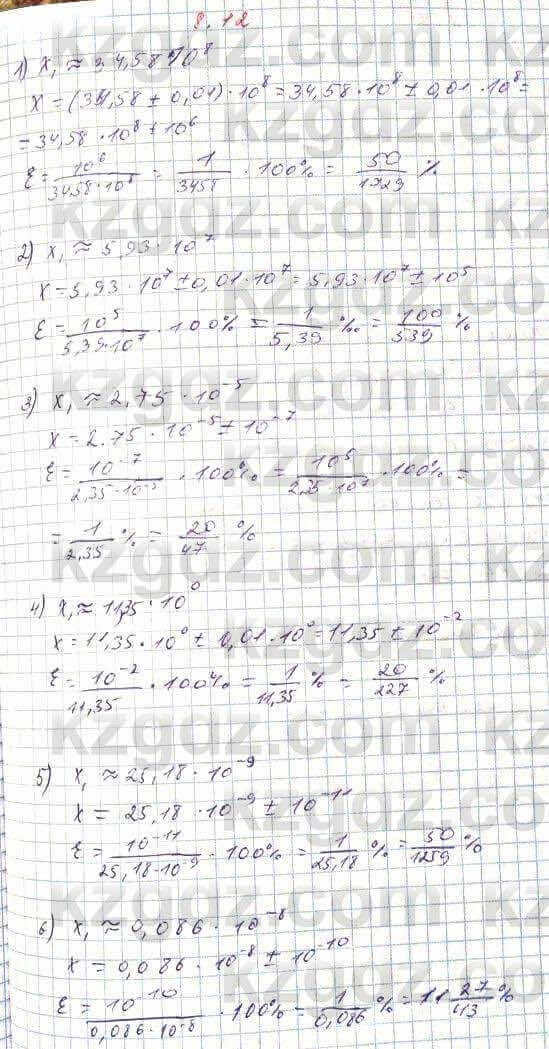 8.12
1) x₁ ≈ 34,58·10⁸
x = (34,58 ± 0,01)·10⁸ = 34,58·10⁸ ± 0,01·10⁸ =
= 34,58·10⁸ ± 10⁶
ε = 10⁶/3458·10⁶ = 1/3458 · 100% = 50/1729 %
2) x₁ ≈ 5,93·10⁷
x = 5,93·10⁷ ± 0,01·10⁷ = 5,93·10⁷ ± 10⁵
ε = 10⁵/5,39·10⁷ · 100% = 1/5,39 % = 100/539 %
3) x₁ ≈ 2,75·10⁻⁵
x = 2,75·10⁻⁵ ± 10⁻⁷
ε = 10⁻⁷/2,35·10⁻⁵ · 100% = 10⁵/2,35·10⁷ · 100% =
= 1/2,35 % = 20/47 %
4) x₁ ≈ 11,35·10⁰
x = 11,35·10⁰ ± 0,01·10⁰ = 11,35 ± 10⁻²
ε = 10⁻²/11,35 · 100% = 1/11,35 % = 20/227 %
5) x₁ ≈ 25,18·10⁻⁹
x = 25,18·10⁻⁹ ± 10⁻¹¹
ε = 10⁻¹¹/25,18·10⁻⁹ · 100% = 1/25,18 % = 50/1259 %
6) x₁ ≈ 0,086·10⁻⁸
x = 0,086·10⁻⁸ ± 10⁻¹⁰
ε = 10⁻¹⁰/0,086·10⁻⁸ · 100% = 1/0,086 % = 11 27/43 %
kzgdz.com